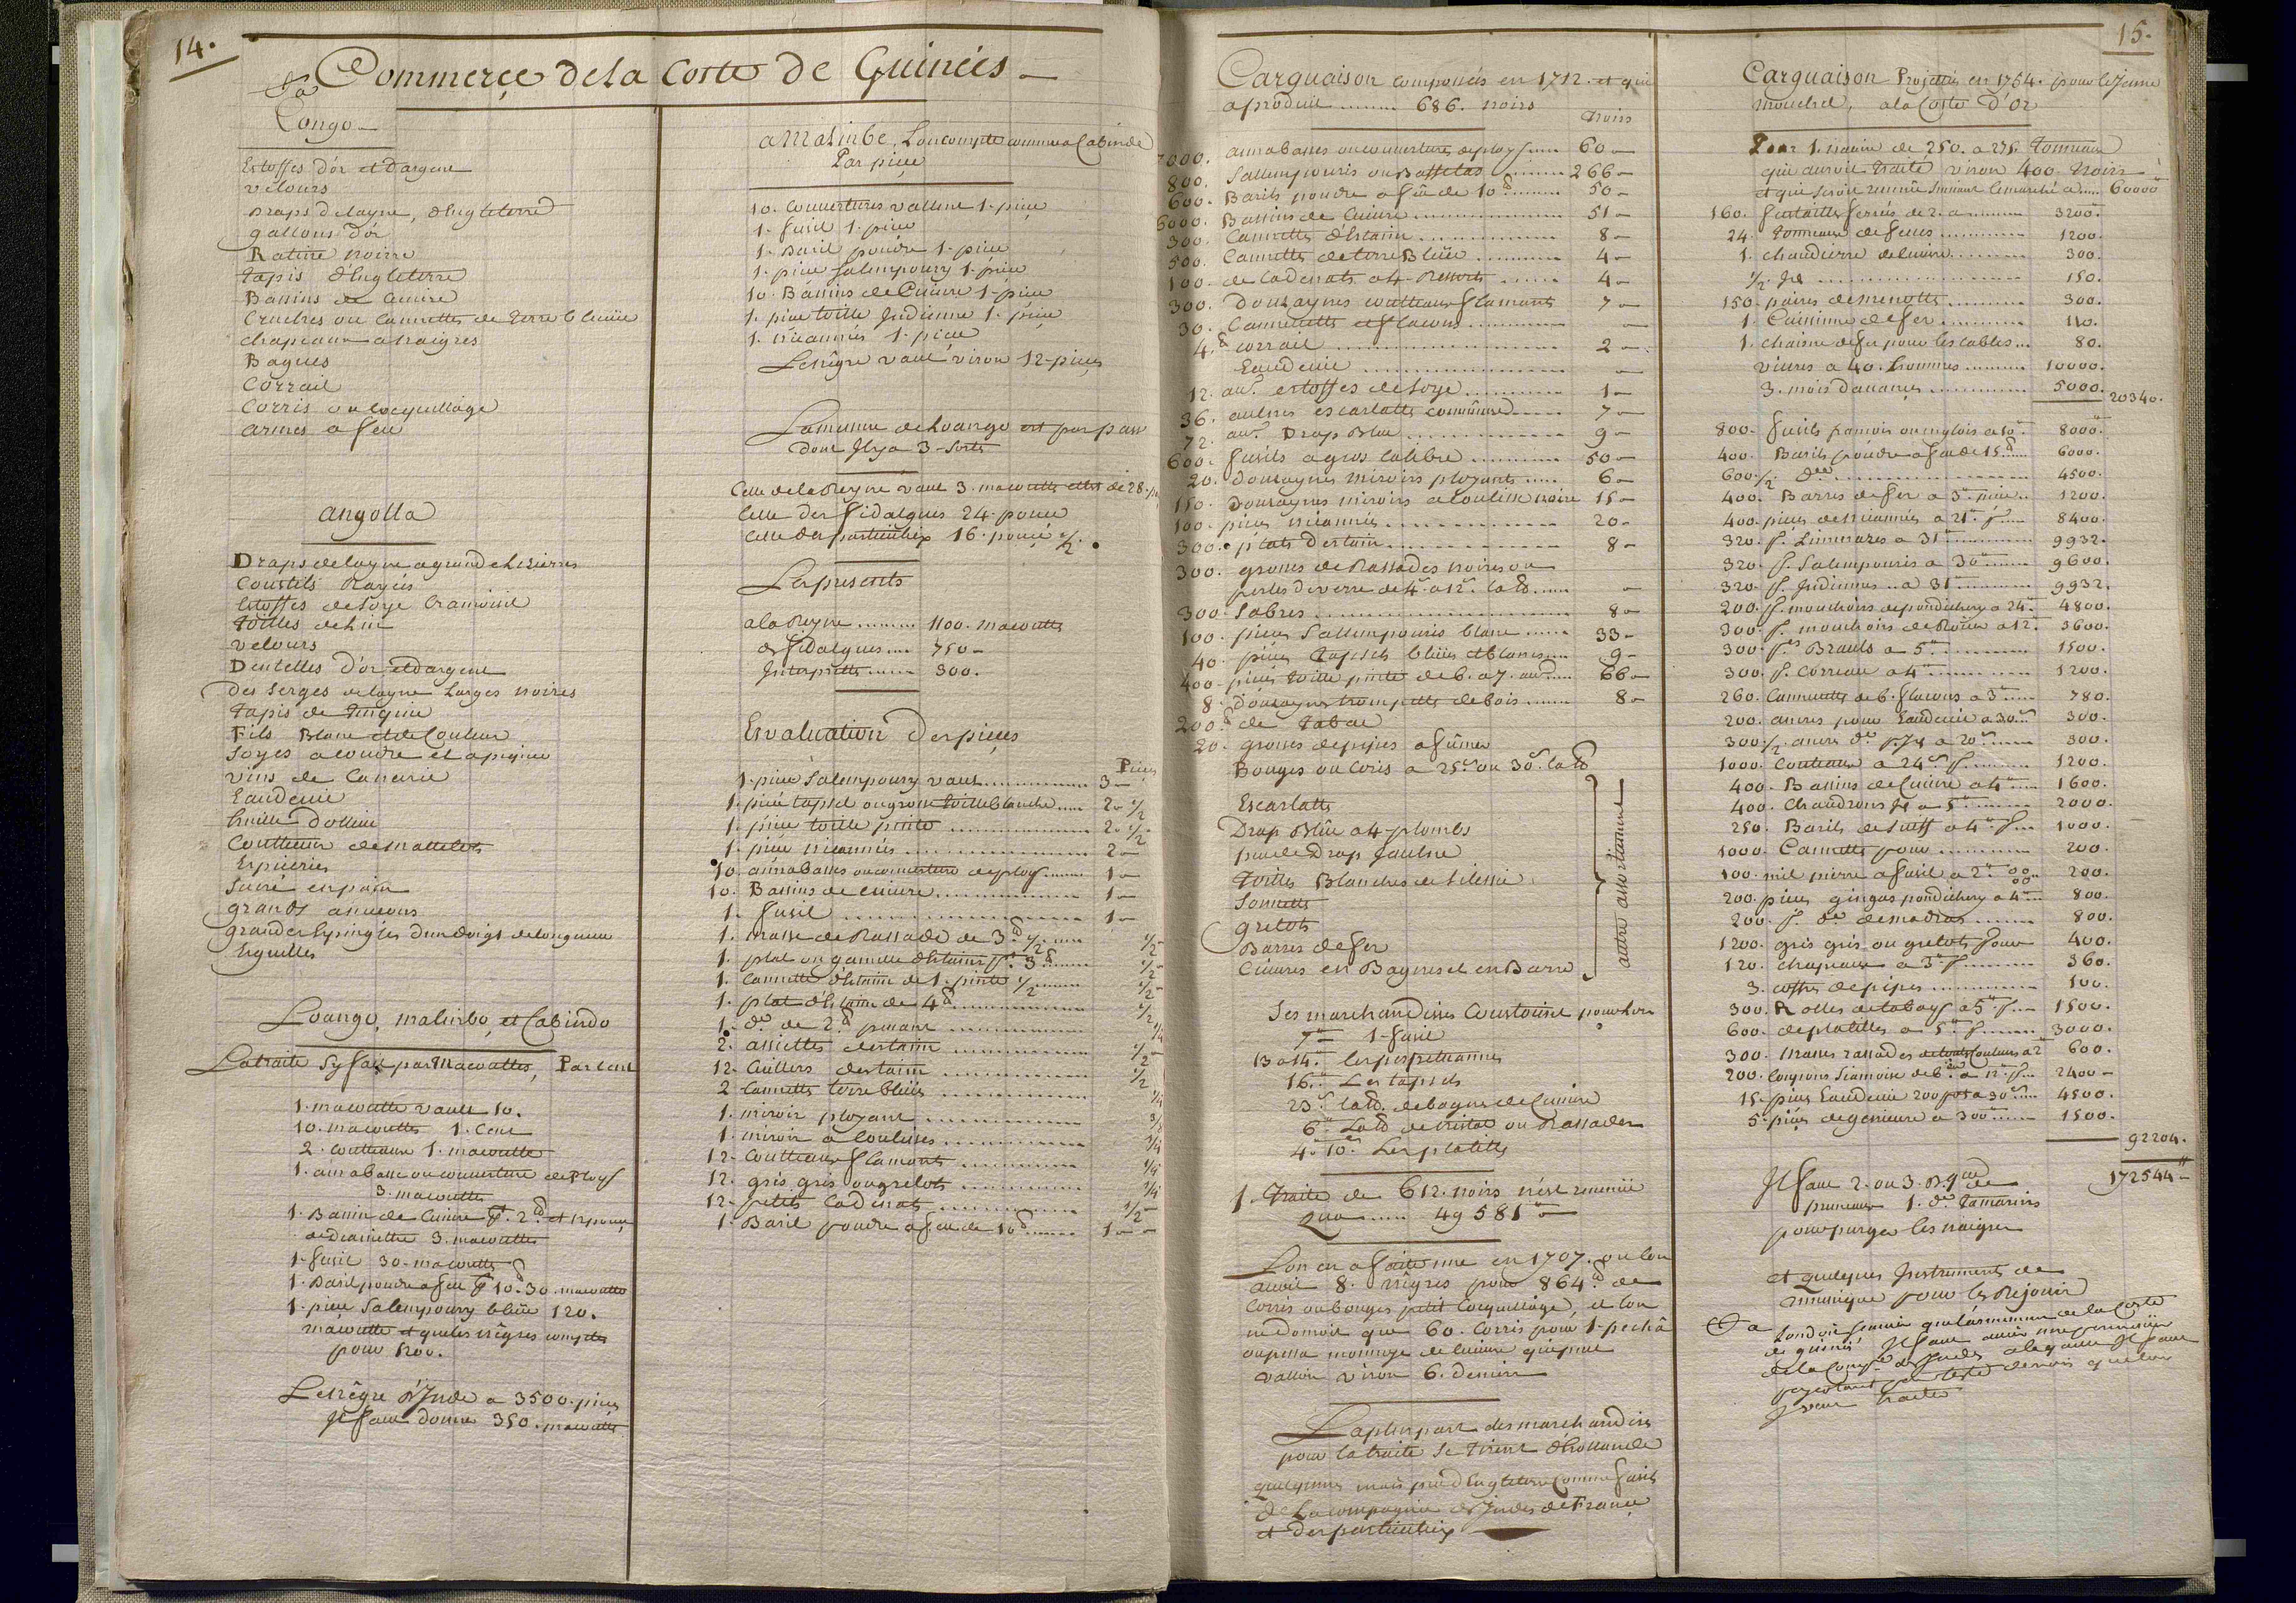 14.
Commerce de la Coste de Guinées
Congo
Estoffes d'or et d'argent
velours
Draps de layne, d'Engleterre
gallons d'or
Ratine noirre
tapis d'Engleterre
Bassins de Cuivre
Cruches ou Cannettes de terre bleüe
chapeaux a naigres
Bagues
Corrail
Corris ou Cocquillage
armes a feu
angolla
Draps de layne a grande Lizierres
Couttils Rayés
Estoffes de soye Cramoisie
toilles de Lin
velours
Dentelles d'or et d'argent
des serges de layne Larges noires
tapis de turquie
Fils Blanc et de Couleur
soyes a coudre et a
vins de Canarie
Eaudevie
huille d'ollive
Coutteaux de mattelots
Espiceries
sucré en pain
grands ameçons
grandes Epingles d'un doigt de longueur
Eguilles
Loango, malimbo, et Cabindo
La traite s'y fait par Macuttes, Par Cent
1. macutte vault 10.
10. macuttes 1. Cent
2. Coutteaux 1. macutte
1. annabasse ou couverture de Ploys
3. macuttes
1. Bassin de Cuivre 2 lb et
de diamettre 3. macuttes
1. fusil 30. macuttes
1. Baril poudre a feu 10 lb 30. macuttes
1. piece Salempoury bleüe 120.
macutte et que les nègres comptes
pour 1200.
Le nègre d'Inde a 3500. pieces
Il faut donner 350. macuttes
a Malimbe, L'on compte comme a Cabinde
Par piece
10. Couvertures vallent 1. piece
1. fusil 1. piece
1. Baril poudre 1. piece
1. piece Salempoury 1. piece
10. Bassins de Cuivre 1. piece
1. piece toille Indienne 1. piece
1. nicannées 1. piece
Le nègre vaut viron 12. pieces
La mesure de Loango est par
dont Il y a 3. sortes
Celle de la Reyne vaut 3. macuttes de 28.
Celle des fidalgues 24. pouce
Celle des particuliers 16. pouce 1/2.
Les presents
a la Reyne ........ 1100. macuttes
des fidalgues .... 750 -
Interprettes ...... 300.
Evaluation des pieces
Pieces
1. piece Salempoury vaut ............ 3 -
1. piece tapsel ou grosse toille blanche .... 2. 1/2
1. piece toille peinte ............ 2. 1/2
1. piece nicannées ............ 2 -
10. annabasses ou couverture de ploys ...... 1 -
10. Bassins de cuivre ............ 1 -
1. fusil ............ 1 -
1. masse de Rassade de 3 lb 1/2 .... 1/2
1. plat ou gamelle d'Estaim 3 lb ...... 1/2
1. Cannette d'Estaim de 1. pinte 1/2 ...... 1/2
1. plat d'Estaim de 4 lb ............ 1/2
1. do de 2 lb pesant ............ 1/4
2. assiettes d'estaim ............ 1/2
12. Cuillers d'estaim ............ 1/2
2. Cannettes terre bleüe ............ 1/4
1. miroir ployant ............ 3/8
1. miroir a Coulisses ............ 3/4
12. Coutteaux flamants ............ 1/4
12. gris gris ou grelots ............ 1/4
12. petits Cadenats ............ 1/2
1. Baril poudre a feu de 10 lb ...... 1 -
15.
Carguaison composées en 1712. et qui
a produit ........ 686. noirs
Noirs
7000. annabasses ou couvertures de ploys ..... 60 -
800. Sallempouris ou Baffetas ........ 266 -
600. Barils poudre a feu de 10 lb ........ 50 -
6000. Bassins de Cuivre ............ 51 -
300. Cannettes d'Estaim ............ 8 -
500. Cannettes de terre Bleüe ......... 4 -
100. de Cadenats a 4. Ressorts ...... 4 -
300. Douzaynes coutteaux flamants 7 -
30. Cannevettes et flacons ............ -
4. lb corrail ............ 2 -
Eaudevie ............ -
12. aun. estoffes de soye .......... 1 -
36. aulnes escarlatte commune ..... 7 -
72. aun. Drap Bleu ............ 9 -
600. fusils a gros Calibre ......... 50 -
20. Douzaynes miroirs ployants ..... 6 -
150. Douzaynes miroirs a coulisse noire 15 -
100. pieces nicannées ............ 20 -
300. plats d'estaim ............ 8 -
300. grosses de Rassades noires ou
perles de verre de 4 a 12 la lb ..... -
300. Sabres ............ 8 -
100. pieces Sallempouris blanc ..... 33 -
40. pieces tapsels bleües et blancs .... 9 -
400. pieces toille peinte de 6. a 7. aun. .... 66 -
8. Douzaynes trompettes de bois ...... 8 -
200. lb de Tabac
20. grosses de pipes a fumer
Bouges ou Coris a 25 ou 30 la lb
Escarlatte
Drap Bleu a 4. plombs
Drap jaulne
toilles Blanches de silesie
sonnettes
grelots
Barres de fer
Cuivres en Bagues et en Barre
autre assortiment
Les marchandises Coustoient pour lors
7 1. fusil
13 a 14 les perpetuannes
16 Les tapsels
23 la lb. de bagues de Cuivre
6 La lb de cristal ou Rassades
4. 10. Les platilles
1. Traite de 612. noirs n'est revenüe
Qua ..... 49581 -
L'on en a faitte une en 1707. ou l'on
avoit 8. nègres pour 864 lb de
Corris ou bouges petit Cocquillage, et l'on
ne donnoit que 60. Corris pour 1. pechâ
ou pessa monnoye de Cuivre qui peut
valloir viron 6. deniers
La pluspart des marchandises
pour la traite se tirent d'hollande
quelqunes mais peu d'Engleterre Comme fusils
De La compagnie des Indes de France
et des particuliers
Carguaison Projettée en 1754. pour le jeune
mouchel, a la Coste d'or
Pour 1. navire de 250. a 275. Tonneaux
qui auroit traité viron 400. Noirs
et qui seroit revenüe suivant le marché a ..... 60000
160. futailles ferrées de 2. a ........ 3200.
24. tonneaux de feves .......... 1200.
1. chaudierre de cuivre ......... 300.
1/2. Id ............ 150.
150. paires de menottes .......... 300.
1. Cuisinne de fer .......... 110.
1. chaisne de fer pour les cables ... 80.
vivres a 40. hommes ........ 10000.
3. mois d'avances .......... 5000.
20340.
800. fusils ou englois a 10 .. 8000.
400. Barils poudre a feu de 15 lb ...... 6000.
600. 1/2 do ............ 4500.
400. Barres de fer a 3 piece .. 1200.
400. pieces de nicannées a 21 p .... 8400.
320. p. Limeneas a 31 ............ 9932.
320. p. Salempouris a 30 ........ 9600.
320. p. Indiennes .. a 31 ......... 9932.
200. p. mouchoirs de pondichery a 24 .. 4800.
300. p. mouchoirs de Roüen a 12 . 3600.
300. p. Brauls a 5 .......... 1500.
300. p. Correau a 4 .......... 1200.
260. Cannevettes de 6. flacons a 3 ..... 780.
200. ancres pour Eaudevie a 30 .... 300.
300. 1/2. ancres do p. Id a 20 ..... 300.
1000. Couteaux a 24 p ........ 1200.
400. Bassins de Cuivre a 4 ..... 1600.
400. Chaudrons Id a 5 ........ 2000.
250. Barils de suiff a 4 p ... 1000.
1000. Cannettes pour .......... 200.
100. mil pierre a fusil a 2 .. 200.
200. pieces gingas pondichery a 4 ... 800.
200. p. do de madras ........ 800.
1200. gris gris ou grelots pour 400.
120. chapeaux a 3 p ......... 360.
3. coffres de pipes .......... 100.
300. Rolles de tabac a 5 p ... 1500.
600. de platilles a 5 p ....... 3000.
300. masses rassades Couleurs a 2 600.
200. Coupons siamoise de 6 a 12 p ... 2400 -
15. pieces Eaudevie 200 pots a 30 ..... 4500.
5. pieces de genievre a 300 ....... 1500.
92204.
172544 -
Il faut 2. ou 3. Bques de
pruneaux 1. do tamarins
pour purger les naigres
et quelques Instruments de
musique pour les Rejouir
L'on doit scavoir de la Coste
de guinée Il faut avoir une permission
de la Compie des Indes a laquelle Il faut
payer tant par teste de noir que l'on
veut traiter